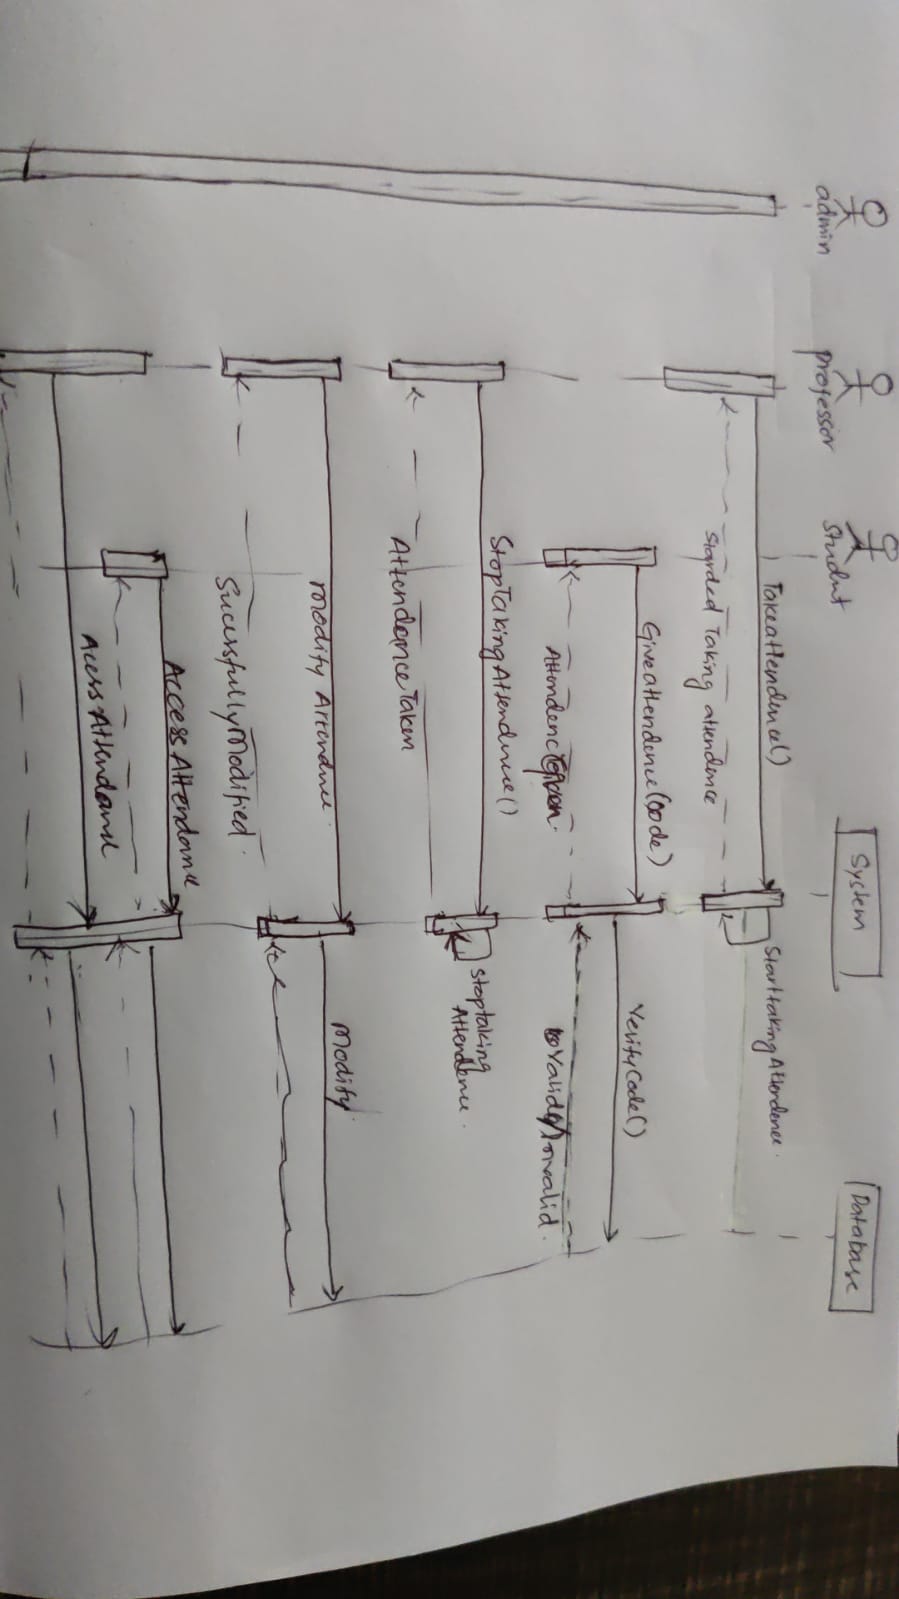 admin
professor
student
System
Database
Takeattendence()
Starttaking Attendence.
Starded Taking attendence
Giveattendence(code)
VerifyCode()
Valid/Invalid.
Attendence
StopTakingAttendnce()
Stoptaking
Attendence.
Attendance Taken
Modify Attendnce.
Modify.
Sucessfully Modified.
Access Attendance
Acess Attendance